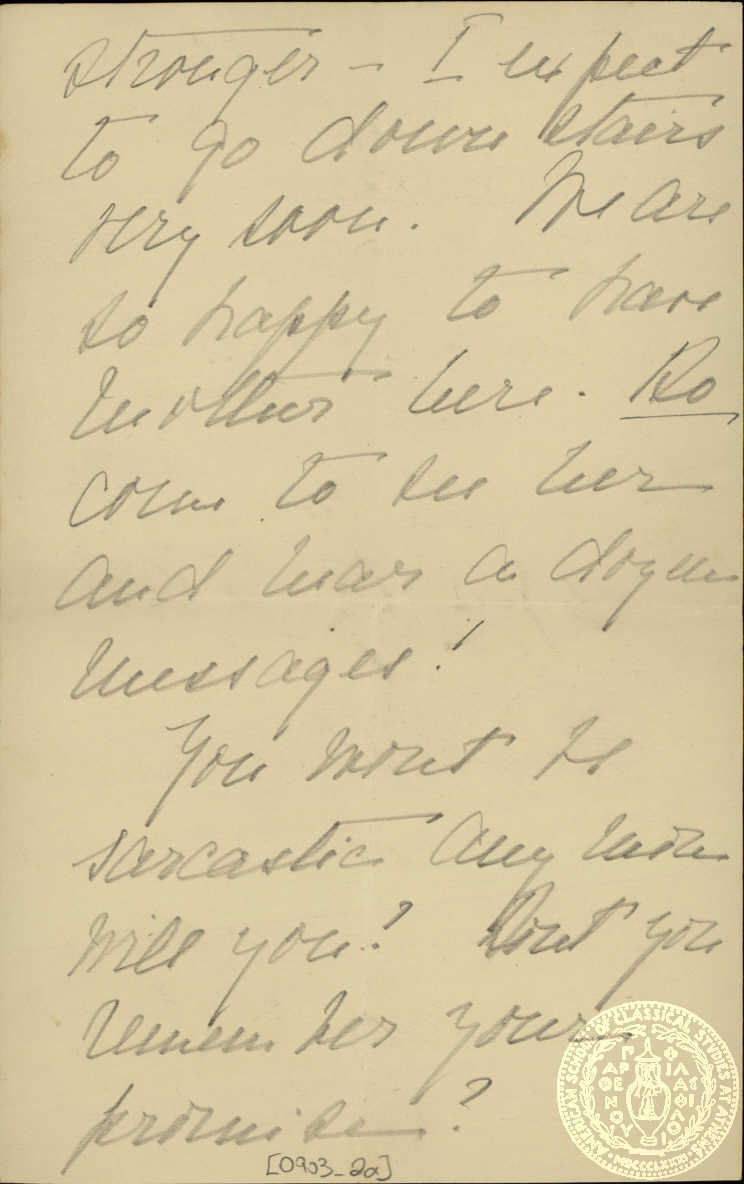 stronger – I expect
to go down stairs
very soon. We are
so happy to have
Mother here. Do
come to see her
and hear a dozen
messages!
You wont be
sarcastic any more
will you? Dont you
remember your
promise?
[0903_2a]
AMERICAN SCHOOL OF CLASSICAL STUDIES AT ATHENS
ΠΑΡΘΕΝΟΥ ΦΙΛΑΣ ΦΙΛΟΙ
MDCCCLXXXI